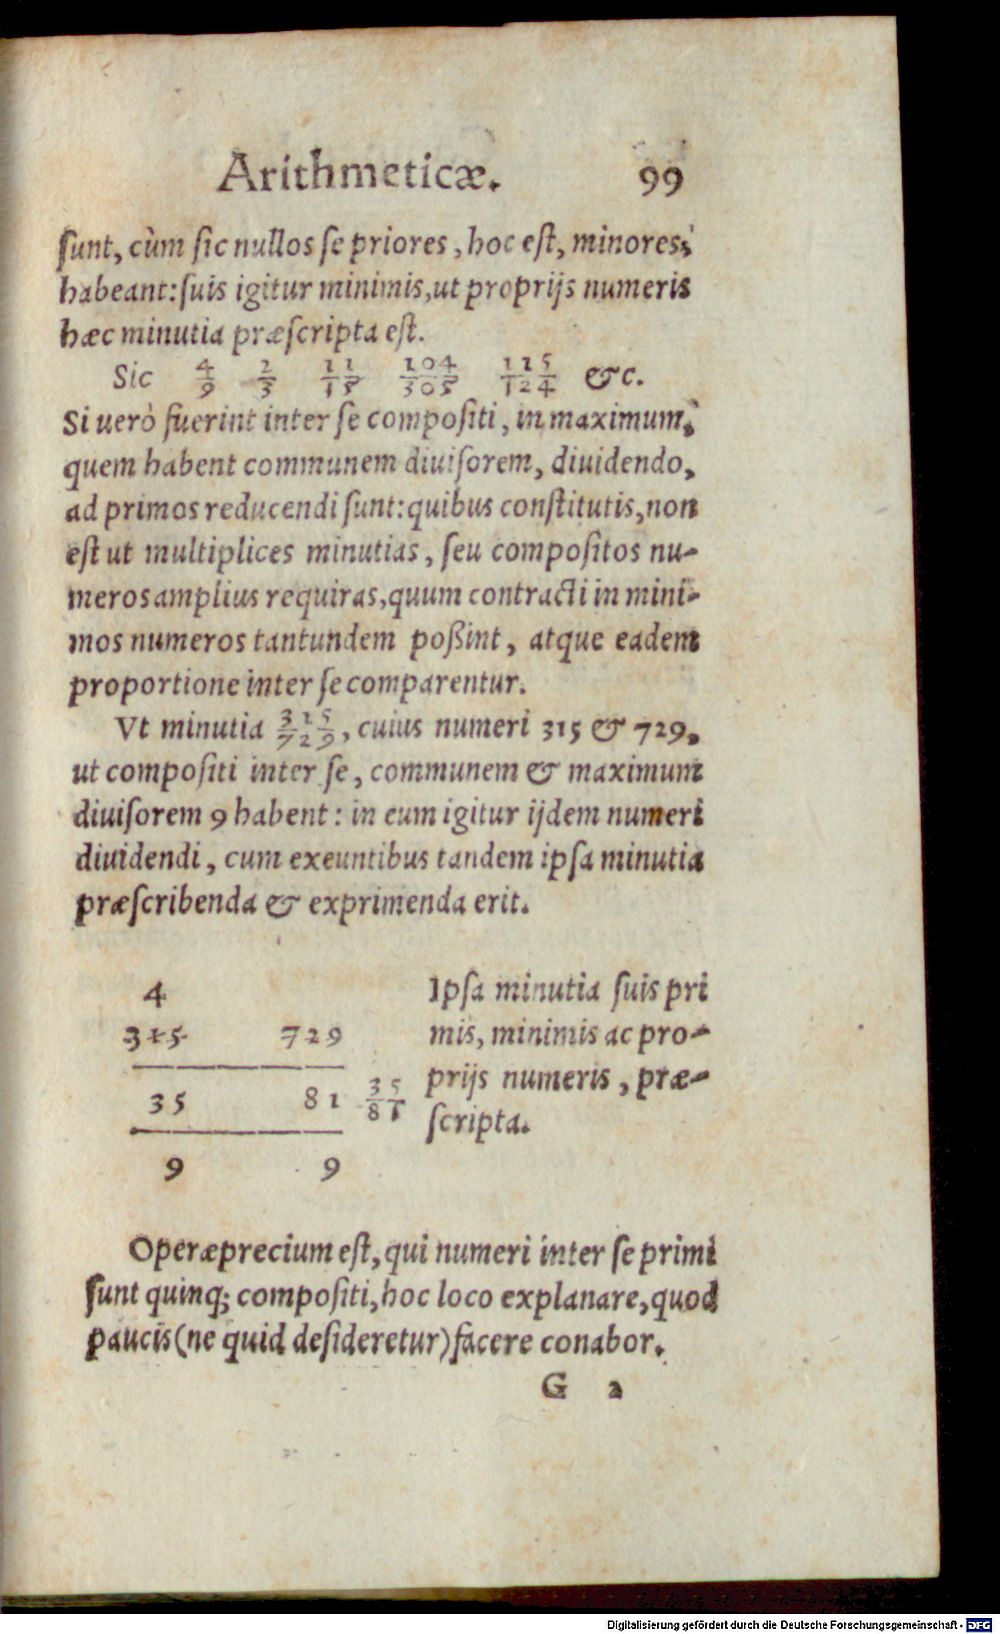 Arithmeticæ. 99
ſunt, cùm ſic nullos ſe priores, hoc eſt, minores,
habeant: ſuis igitur minimis, ut proprijs numeris
hæc minutia præſcripta eſt.
Sic 4/9 2/3 11/15 104/305 115/124 &c.
Si uerò fuerint inter ſe compoſiti, in maximum,
quem habent communem diuiſorem, diuidendo,
ad primos reducendi ſunt: quibus conſtitutis, non
eſt ut multiplices minutias, ſeu compoſitos nu-
meros amplius requiras, quum contracti in mini-
mos numeros tantundem poßint, atque eadem
proportione inter ſe comparentur.
Vt minutia 315/729, cuius numeri 315 & 729,
ut compoſiti inter ſe, communem & maximum
diuiſorem 9 habent: in eum igitur ijdem numeri
diuidendi, cum exeuntibus tandem ipſa minutia
præſcribenda & exprimenda erit.
4
315 729
35 81 35/81
9 9
Ipſa minutia ſuis pri
mis, minimis ac pro-
prijs numeris, præ-
ſcripta.
Operæprecium eſt, qui numeri inter ſe primi
ſunt quinq; compoſiti, hoc loco explanare, quod
paucis (ne quid deſideretur) facere conabor.
G 2
Digitalisierung gefördert durch die Deutsche Forschungsgemeinschaft - DFG